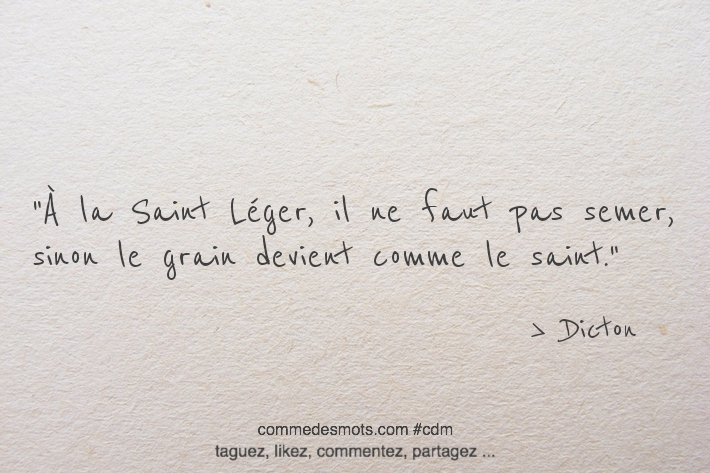 "À la Saint Léger, il ne faut pas semer,
sinon le grain devient comme le saint."
> Dicton
commedesmots.com #cdm
taguez, likez, commentez, partagez ...